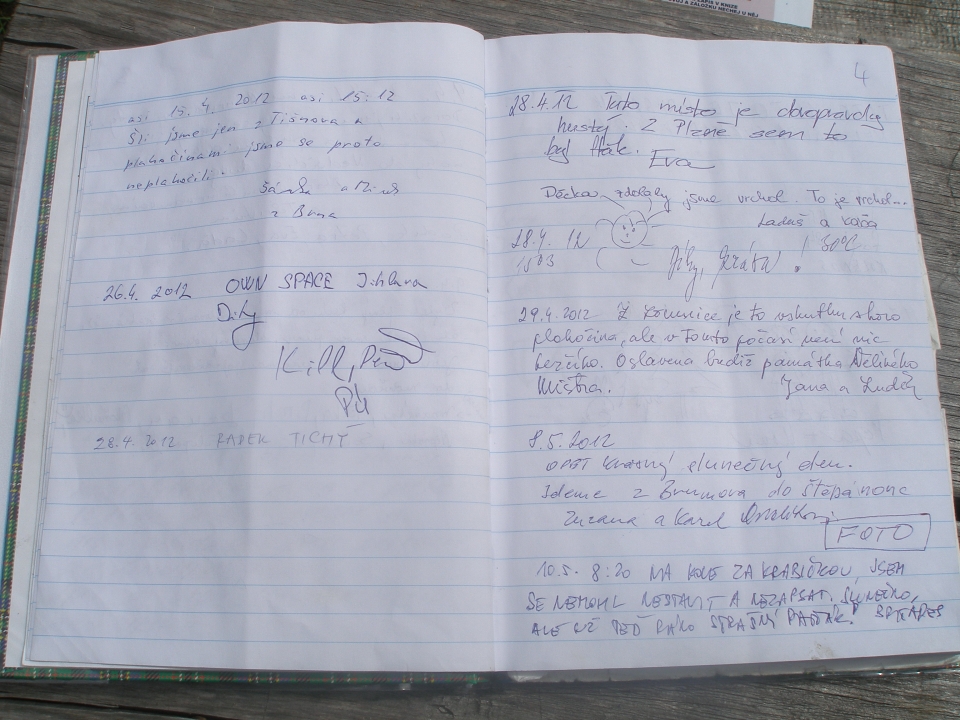 ZÁPIS V KNIZE
A ZÁLOŽKU NECHEJ U NĚJ
asi 15.4. 2012 asi 15:12
Šli jsme jen z Tišnova a
plahočinami jsme se proto
neplahočili.
Šárka a
z Brna
26.4. 2012 OWN SPACE Jihlava
Díky
28.4. 2012 RADEK TICHÝ
4
28.4.12 Tato místo je doopravdy
hustý. Z Plzně sem to
byl flák. Eva
Děcka, zdolaly jsme vrchol. To je vrchol..
Laduš a Káča
28.4. 12
1503
Díky, ! 30°C
29.4.2012 Z je to vskutku skoro
plahočina, ale v tomto počasí není nic
těžkého. Oslavena budiž památka Velikého
Mistra. Jana a Luděk
8.5.2012
OPĚT krásný slunečný den.
Jdeme z Brumova do
Zuzana a Karel
FOTO
10.5. 8:20 NA KOLE ZA KRABIČKOU, JSEM
SE NEMOHL NESTAVIT A NEZAPSAT. SLUNEČKO,
ALE UŽ TEĎ RÁNO STRAŠNÝ PAŘÁK!